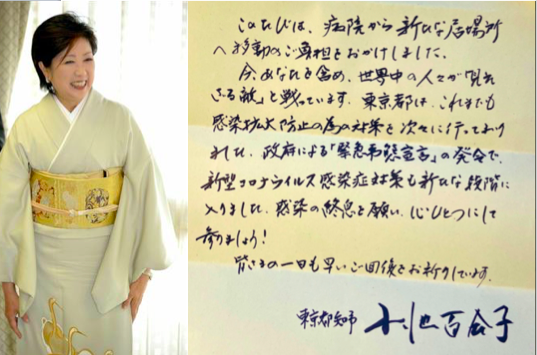 このたびは、病院から新たな居場所
へ移動のご負担をおかけしました。
今、あなたを含め、世界中の人々が「見え
ざる敵」と戦っています。東京都は、これまでも
感染拡大防止の為の対策を次々に行っており
ましたが、政府による「緊急事態宣言」の発令で、
新型コロナウイルス感染症対策も新たな段階に
入りました。感染の終息を願い、心ひとつにして
参りましょう！
皆さまの一日も早いご回復をお祈りしています。
東京都知事 小池百合子